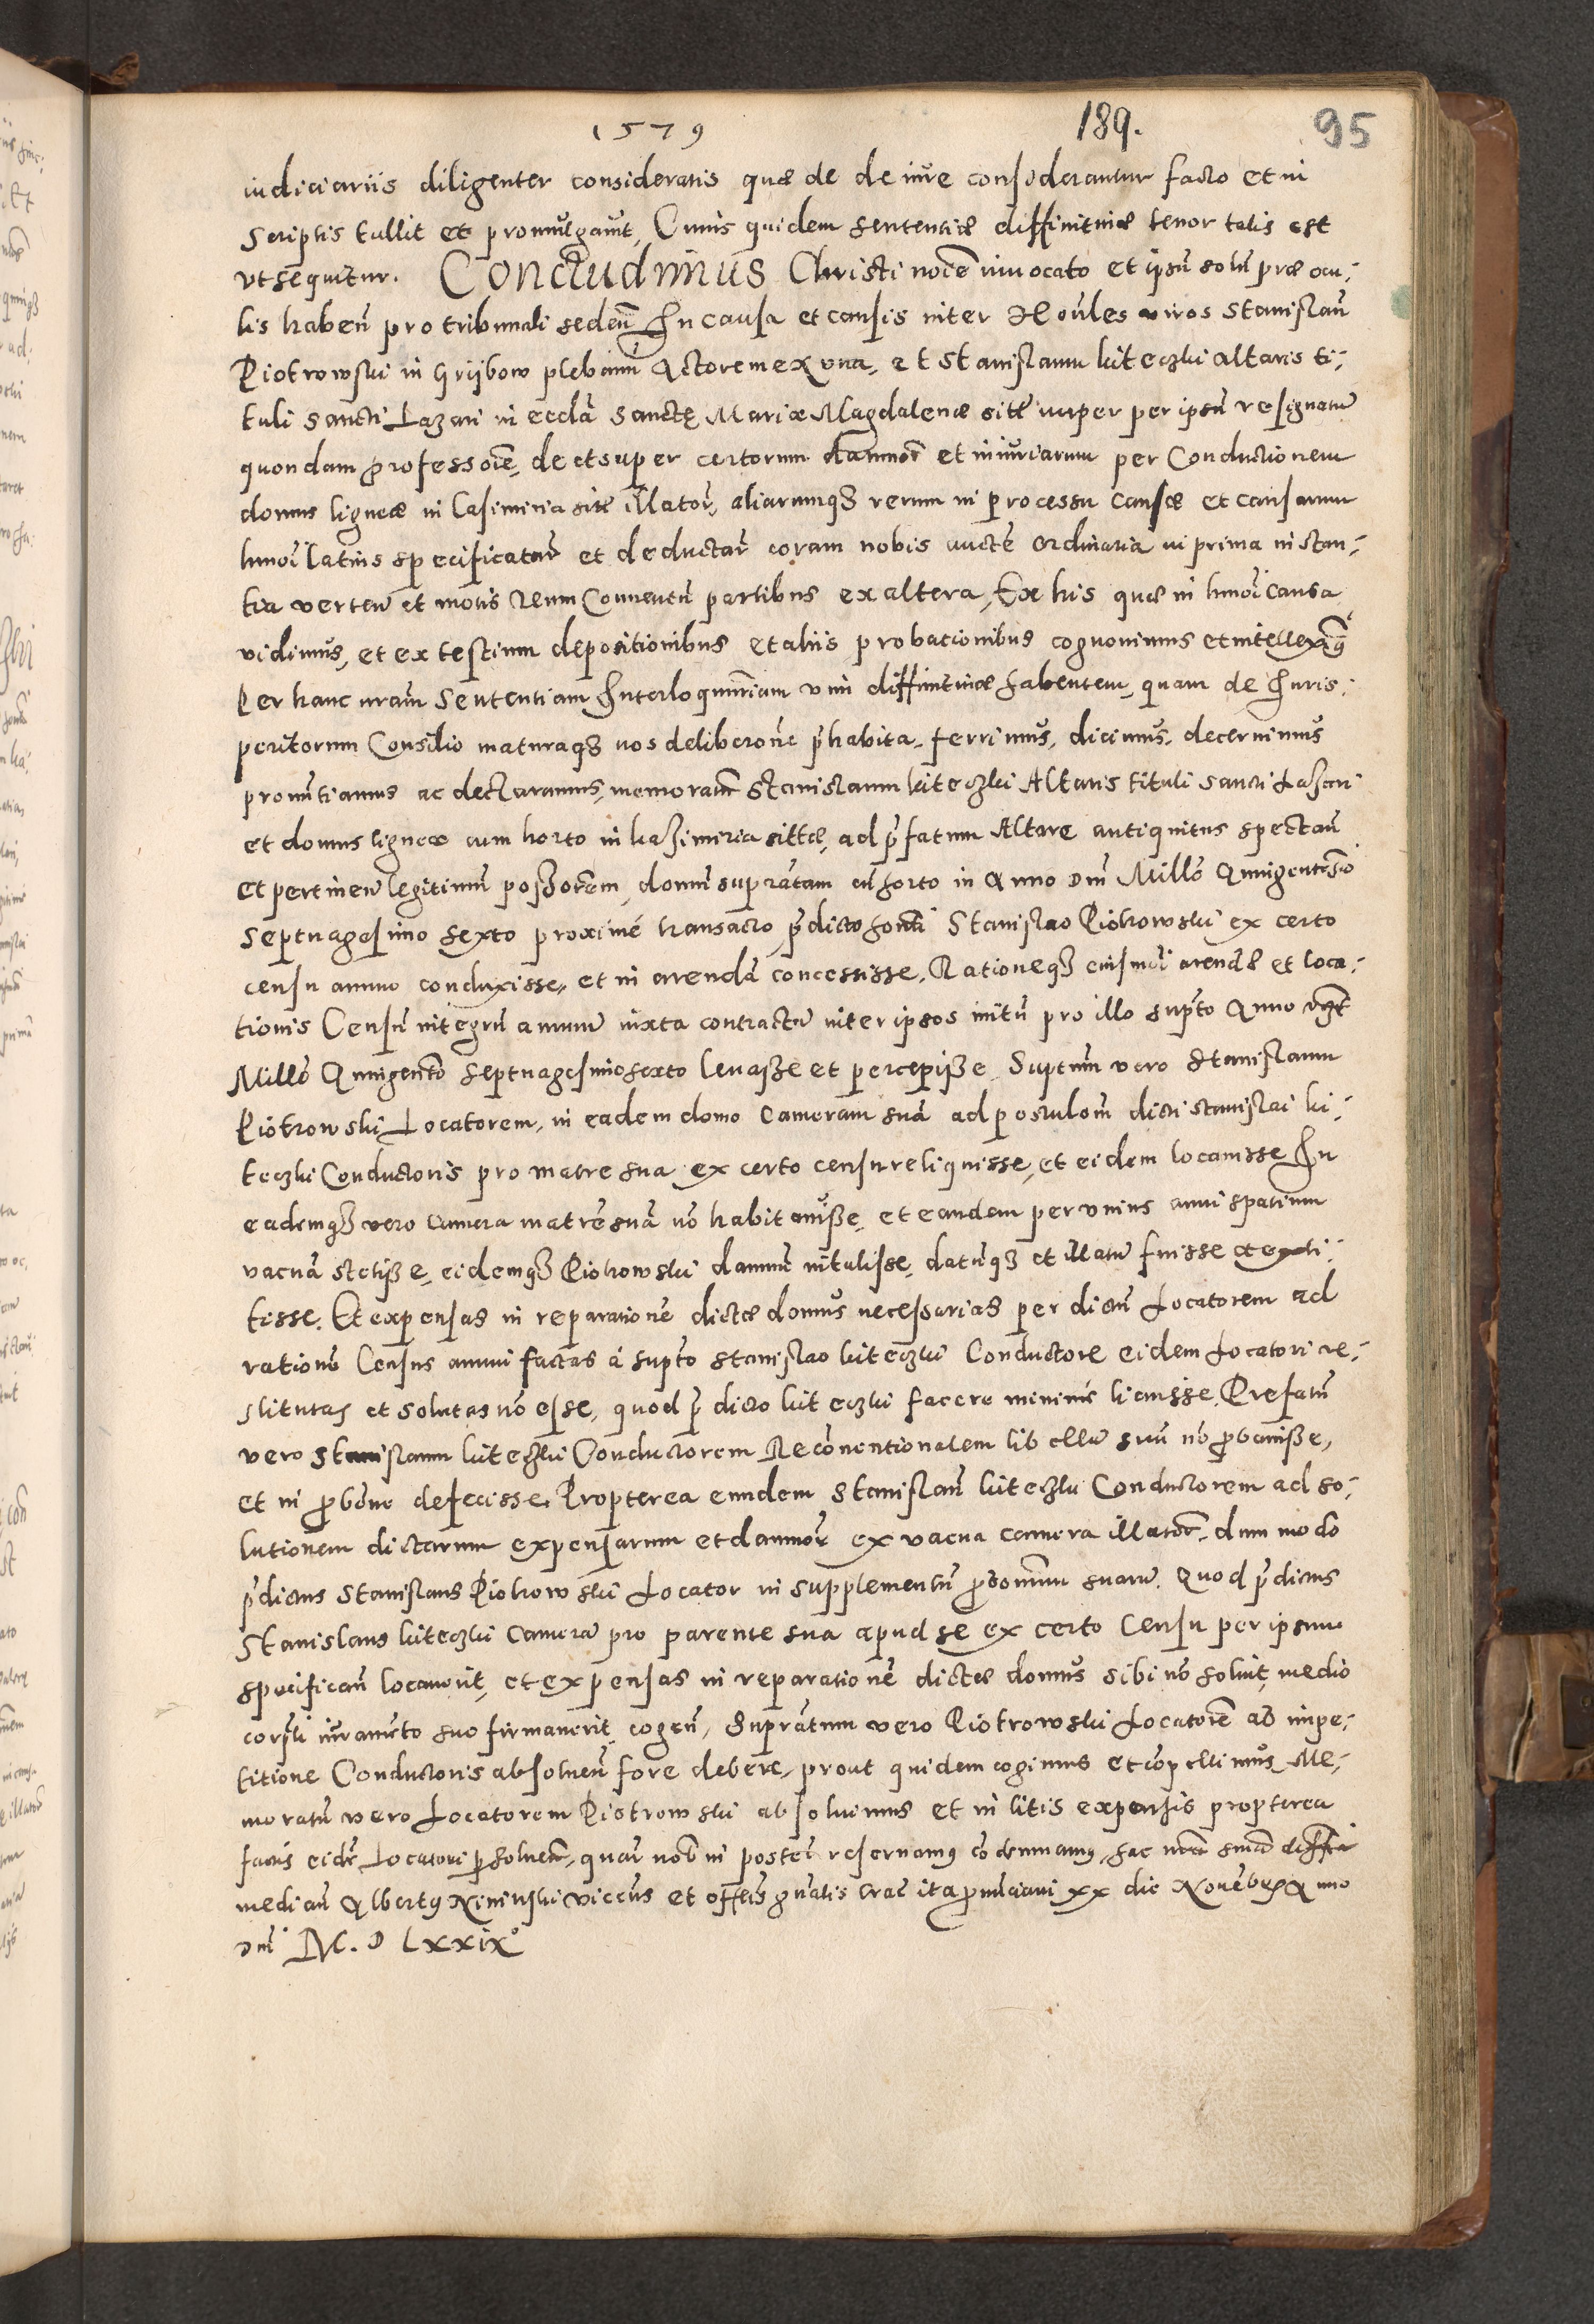 1579 189. 95
iudiciariis diligenter consideratis quæ de de iure considerantur facto et in
Scriptis tullit et promulgauit, Cuius quidem sententiæ diffinitiuæ tenor talis est
vt sequitur. Concludimus Christi noīe inuocato et ipsū solū præ ocu:
lis habeñ pro tribunali sedeñ In causa et causis inter Hoñles viros Stanislaū
Piotrowski in Griibow plebanū Actorem ex vna, et Stanislaum kiteczki altaris ti:
tuli Sancti Lazari in eccłā Sanctę Mariæ Magdalenæ sitē nuper per ipsū resignatū
quondam professorē, de et super certorum damnorē et iniuriarum per Conductionem
domus ligneæ in Casimiria sitē illatorē, aliarumqȝ rerum in processu causæ et causarum
hmōi latius specificatarē et deductarē coram nobis auctē ordinaria in prima instan:
tia verteñ et motis Reum Conuentū partibus ex altera, Ex his quæ in hmōi causa
vidimus, et ex testium depositionibus et aliis probationibus cognouimus et intelleximꝰ
Per hanc nrām Sententiam Interloquutriam vim diffinitiuæ habentem, quam de Iuris:
peritorum Consilio maturaqȝ nos deliberoñe p̄habita, ferrimus, dicimus, decernimus
pronuntiamus ac declaramus, memoratū Stanislaum kiteczki Altaris tituli Sancti Lazari
et domus ligneæ cum horto in kazimiria sittæ, ad p̄fatum Altare antiquitus spectañ
et pertineñ legitimū possorem, domū suprātam cū horto in Anno Dnī Millō Quingentesīo
septuagesimo sexto proximé transacto p̄dicto honli Stanislao Piotrowski ex certo
censu annuo conduxisse, et in arendā concessisse, Rationeqȝ eiusmōi arendæ et loca:
tionis Censū integrū annuū iuxta contractū inter ipsos initū pro illo suptō Anno
Millō Quingentō septuagesimo sexto leuasse et percepisse Suptum vero Stanislaum
Piotrowski Locatorem, in eadem domo Cameram suā ad postuloñē dicti stanislai ki:
teczki Conductoris pro matre sua ex certo censu reliquisse, et eidem locauisse In
eademqȝ vero camera matrē suā nō habitauisse, et eandem per vnius anni spatium
vacuā stetisse, eidemqȝ Piotrowski damnū intulisse, datūqȝ et illatū fuisse et exti:
tisse. Et expensas in reparationē dictæ domus necessarias per dictū Locatorem ad
rationē Census annui factas á suptō stanislao kiteczki Conductore eidem Locatori re:
stitutas et solutas nō esse, quod p̄dicto kiteczki facere minimé licuisse. Prefatū
vero stanislaum kiteczki Conductorem Reconuentionalem libellū suū nō ꝓbauisse,
et in ꝓboñe defecisse. Propterea eundem Stanislaū kiteczki Conductorem ad so:
lutionem dictarum expensarum et damnorē ex vacua camera illatorē, dummodo
p̄dictus Stanislaus Piotrowski Locator in supplementū ꝓbonum suarū. Quod p̄dictus
Stanislaus kiteczki Camerā pro parente sua apud se ex certo Censu per ipsum
specificatū locauerit, et expensas in reparationē dictæ domus sibi nō soluit, medio
corpłi iuramēto suo firmauerit, cogeñ, Suprātum vero Piotrowski Locatorē ab impe:
titione Conductoris absolueñ fore debere, prout quidem cogimus et cōpellimus, Me:
moratū vero Locatorem Piotrowski absoluimus et in litis expensis propterea
factis eidē Locatori ꝑsolueñ, quarē nobē in posterē reseruamꝰ cōdemnamꝰ, hac nrā snīa diffīa
mediañ Albertꝰ viceeūs et offłis gnālis Crāc ita ꝓnūciaui xx die Nouēbris Anno
Dnī M. D LXXIX°